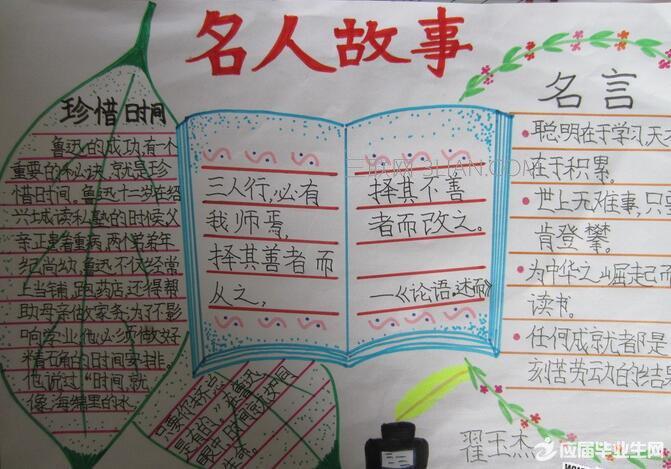 名人故事
珍惜时间
鲁迅的成功,有个
重要的秘诀,就是珍
惜时间。鲁迅十二岁在绍
兴城读私塾的时候,父
亲正患着重病,两个弟弟年
纪尚幼,鲁迅不仅经常
上当铺,跑药店,还得帮
助母亲做家务;为了不影
响学业,他必须做好
精确的时间安排。
他说过:“时间,就
像海绵里的水
三人行,必有
我师焉,
择其善者而
从之,
择其不善
者而改之。
—《论语·述而》
名言
聪明在于学习,天
在于积累。
世上无难事,只要
肯登攀。
为中华之崛起而
读书。
任何成就都是
刻苦劳动的结
翟玉杰
应届毕业生网